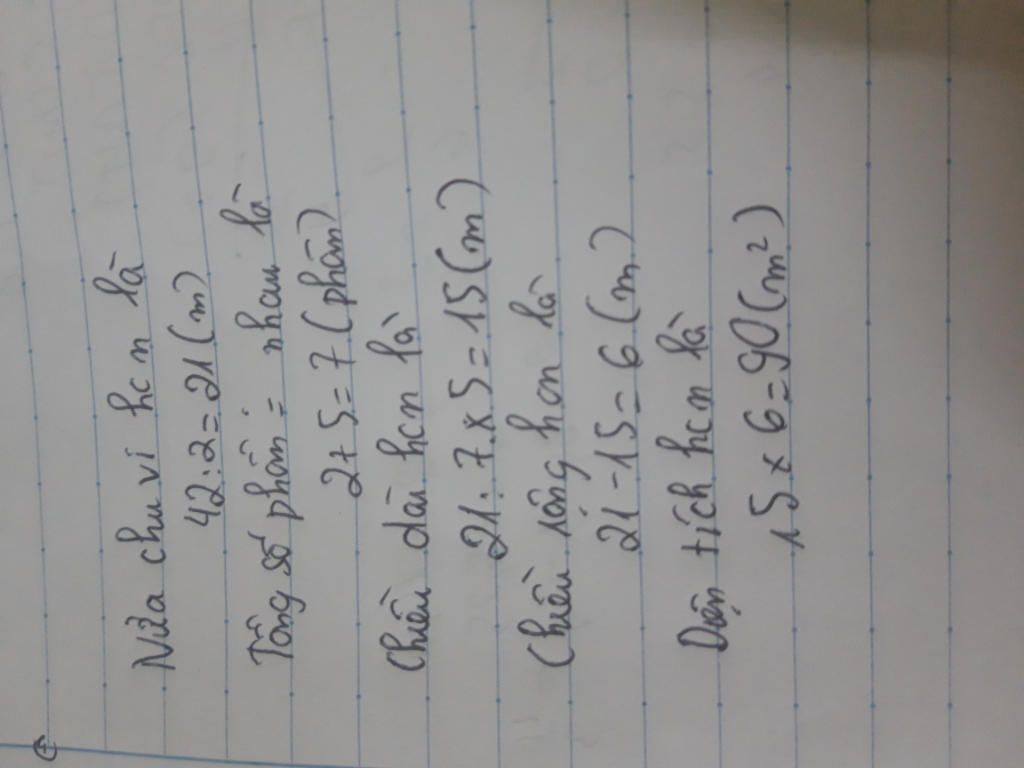 Nửa chu vi hcn là
42:2=21(m)
Tổng số phần = nhau là
2+5=7(phần)
Chiều dài hcn là
21:7x5=15(m)
Chiều rộng hcn là
21-15=6(m)
Diện tích hcn là
15x6=90(m²)